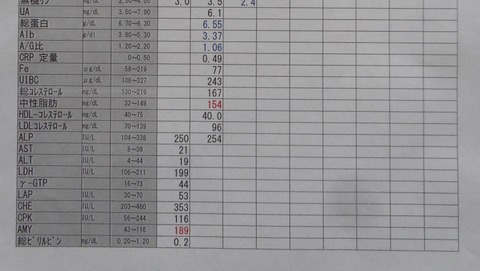 無機リン mg/dL 2.50~4.50 3.0 3.5 2.4
UA mg/dL 3.50~7.90 6.1
総蛋白 g/dL 6.70~8.30 6.55
Alb g/dl 3.80~5.30 3.37
A/G比 1.20~2.20 1.06
CRP 定量 0~0.50 0.49
Fe μg/dL 58~219 77
UIBC μg/dL 108~327 243
総コレステロール mg/dL 130~219 167
中性脂肪 mg/dL 32~149 154
HDL-コレステロール mg/dL 40~75 40.0
LDLコレステロール mg/dL 70~139 96
ALP IU/L 104~338 250 254
AST IU/L 8~38 21
ALT IU/L 4~44 19
LDH IU/L 106~211 199
γ-GTP IU/L 16~73 44
LAP IU/L 30~70 53
CHE IU/L 203~460 353
CPK IU/L 56~244 116
AMY IU/L 43~116 189
総ビリルビン mg/dL 0.20~1.20 0.2